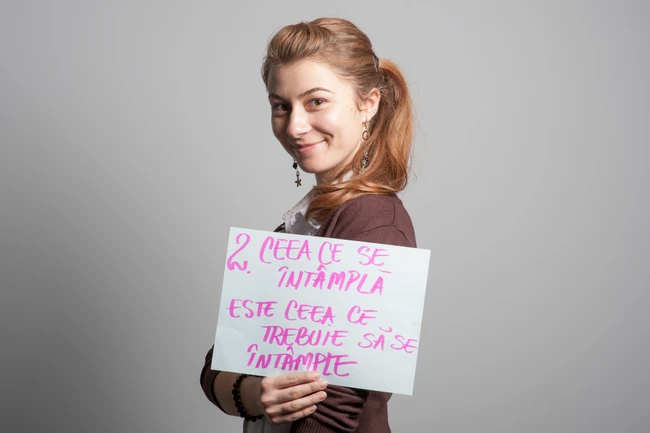 2. CEEA CE SE
ÎNTÂMPLĂ
ESTE CEEA CE
TREBUIE SĂ SE
ÎNTÂMPLE